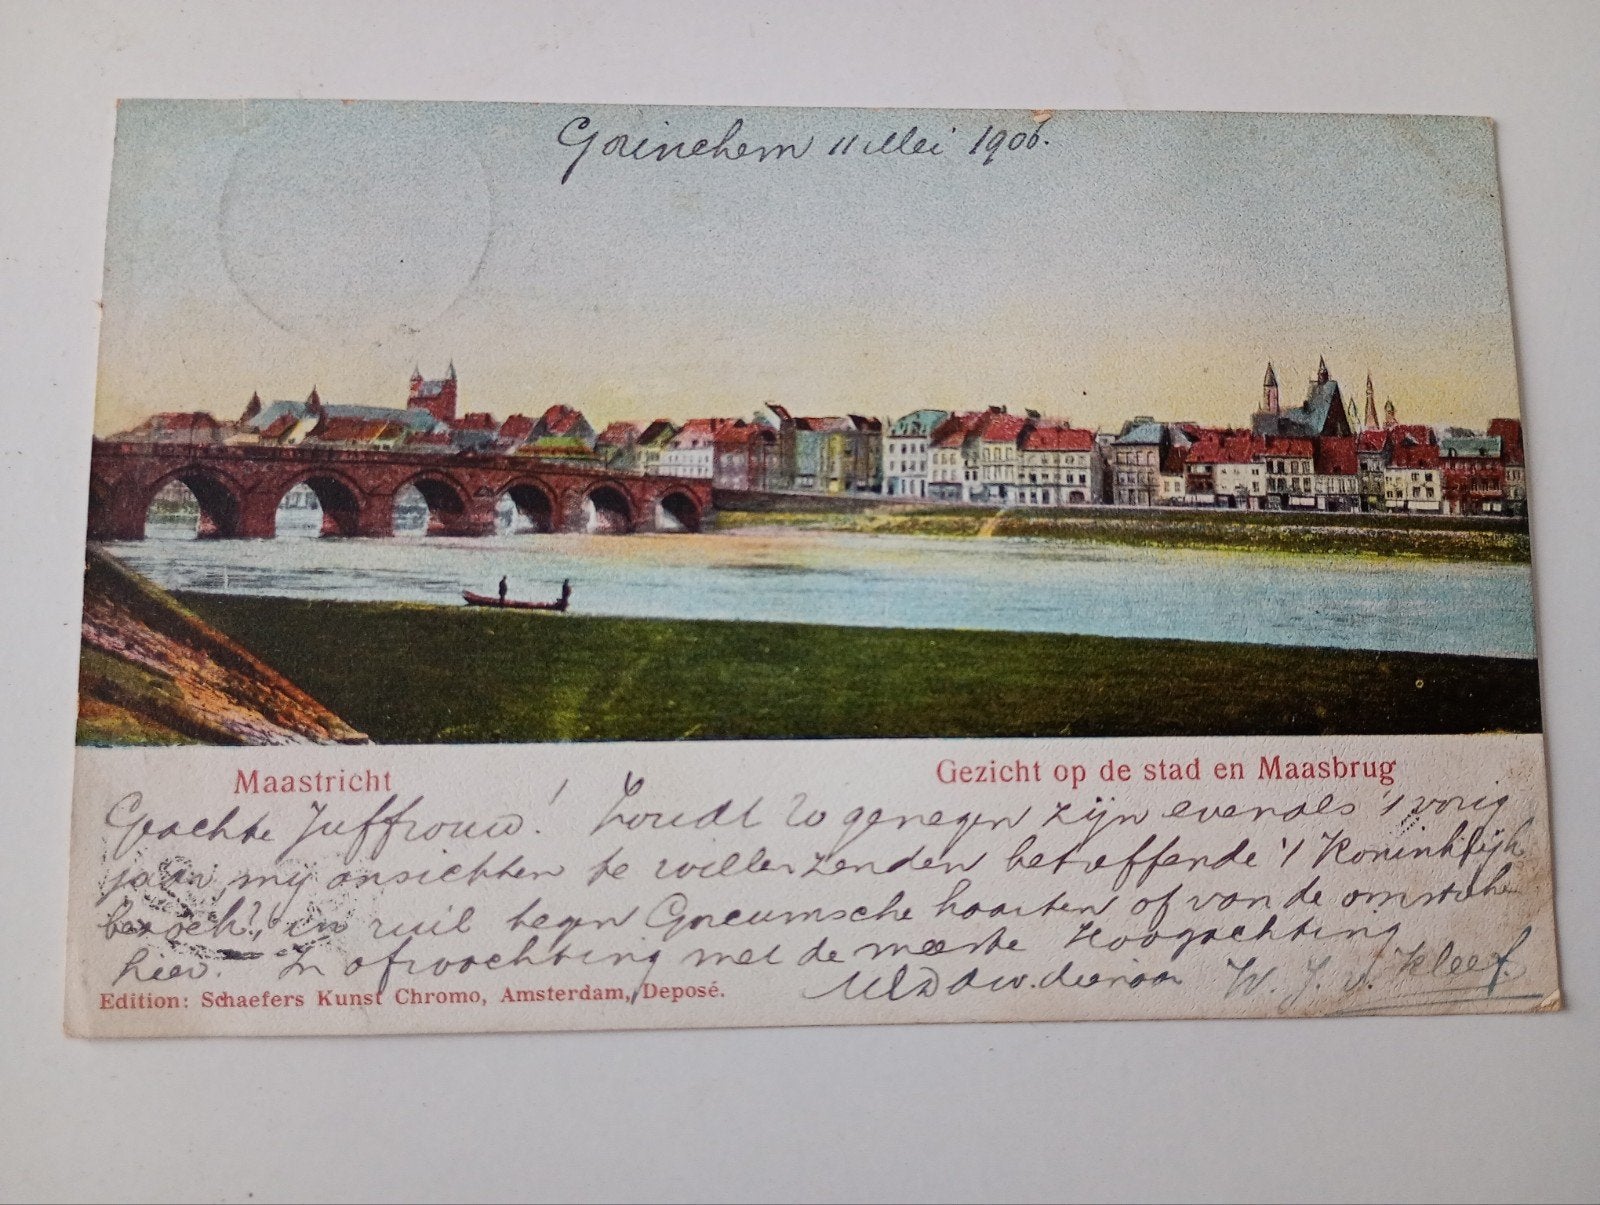 Gorinchem 11 Mei 1906.
Maastricht
Gezicht op de stad en Maasbrug
Geachte Juffrouw! Zoudt U zo genegen zijn evenals 't vorig
jaar mij ansichten te willen zenden betreffende 't Koninklijk
bezoek?, in ruil tegen Gorcumsche kaarten of van de omstreken
hier. In afwachting met de meeste Hoogachting
UEd dw. dienaar W. J. v. Kleef.
Edition: Schaefers Kunst Chromo, Amsterdam, Deposé.